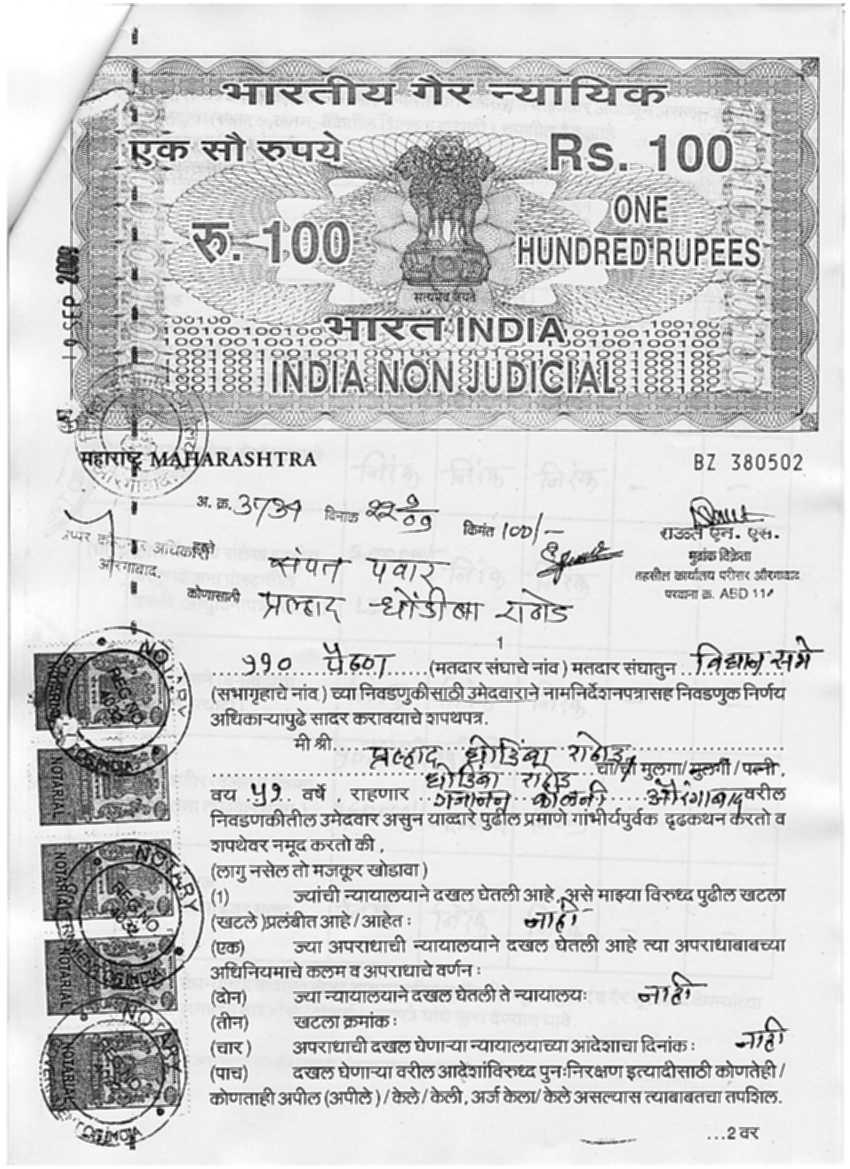 भारतीय गैर न्यायिक
एक सौ रुपये
Rs. 100
रु. 100
ONE
HUNDRED RUPEES
सत्यमेव जयते
भारत INDIA
INDIA NON JUDICIAL
19 SEP 2009
महाराष्ट्र MAHARASHTRA
BZ 380502
अ. क्र. 3734 दिनांक 22/9/09 किंमत 100/-
राऊत एन. एस.
मुद्रांक विक्रेता
तहसील कार्यालय परीसर औरंगाबाद
परवाना क्र. ABD 11
औरंगाबाद.
हस्ते संपत पवार
कोणासाठी प्रल्हाद धोंडीबा राठोड
1
११० पैठण (मतदार संघाचे नांव) मतदार संघातुन विधान सभे
(सभागृहाचे नांव) च्या निवडणुकीसाठी उमेदवाराने नामनिर्देशनपत्रासह निवडणुक निर्णय
अधिकाऱ्यापुढे सादर करावयाचे शपथपत्र.
मी श्री... प्रल्हाद धोंडिबा राठोड
धोंडिबा राठोड चा/ची मुलगा/मुलगी/पत्नी,
वय ५१ वर्षे राहणार गजानन कॉलनी औरंगाबाद वरील
निवडणकीतील उमेदवार असुन याव्दारे पुढील प्रमाणे गांभीर्यपुर्वक दृढकथन करतो व
शपथेवर नमूद करतो की,
(लागु नसेल तो मजकूर खोडावा)
(1) ज्यांची न्यायालयाने दखल घेतली आहे, असे माझ्या विरुध्द पुढील खटला
(खटले)प्रलंबीत आहे/आहेत: नाही
(एक) ज्या अपराधाची न्यायालयाने दखल घेतली आहे त्या अपराधाबाबच्या
अधिनियमाचे कलम व अपराधाचे वर्णन:
(दोन) ज्या न्यायालयाने दखल घेतली ते न्यायालयः नाही
(तीन) खटला क्रमांक:
(चार) अपराधाची दखल घेणाऱ्या न्यायालयाच्या आंदेशाचा दिनांक: नाही
(पाच) दखल घेणाऱ्या वरील आदेशांविरुध्द पुनःनिरक्षण इत्यादीसाठी कोणतेही/
कोणताही अपील (अपीले)/केले/केली, अर्ज केला/केले असल्यास त्याबाबतचा तपशिल.
...2 वर
NOTARY
REG NO
NOTARIAL
NOTARIAL
NOTARY
REG NO
NOTARIAL
NOTARIAL
NOTARY